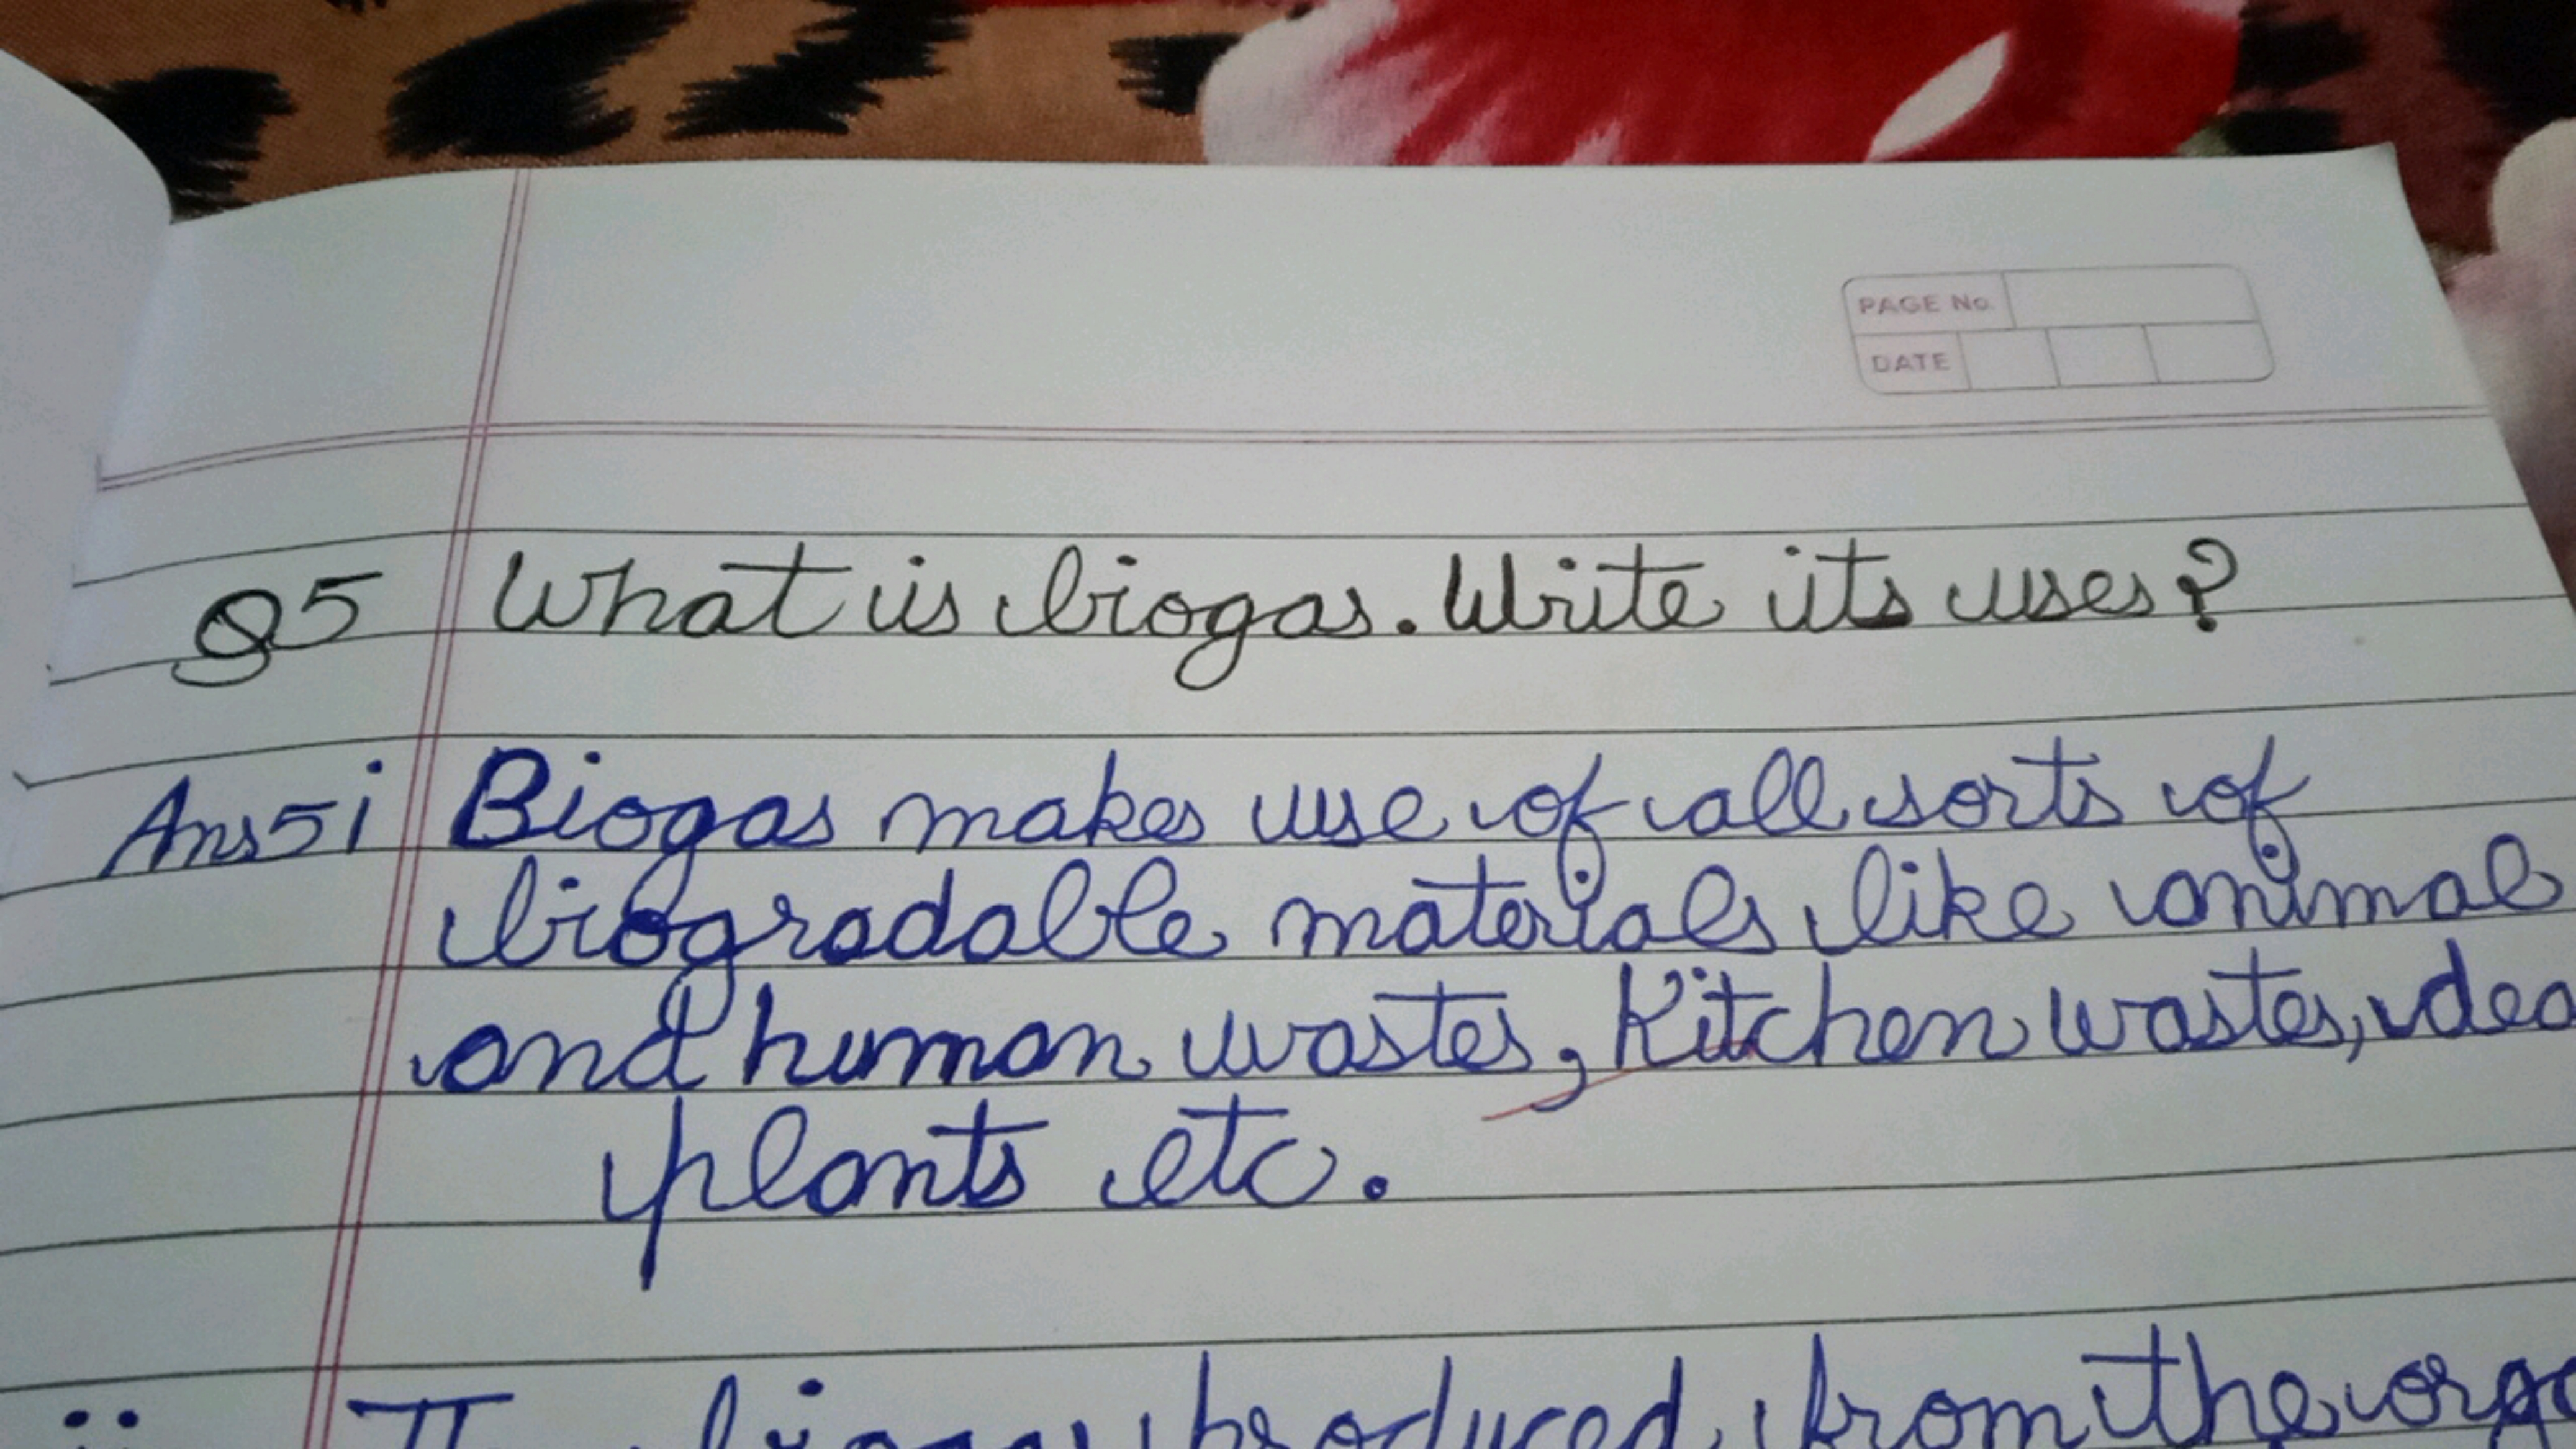 PAGE No.
DATE
Q5 What is biogas. Write its uses?
Ans5 i Biogas makes use of all sorts of
biogradable materials like animal
and human wastes, Kitchen wastes, dea
plants etc.
ii The biogas produced from the orga